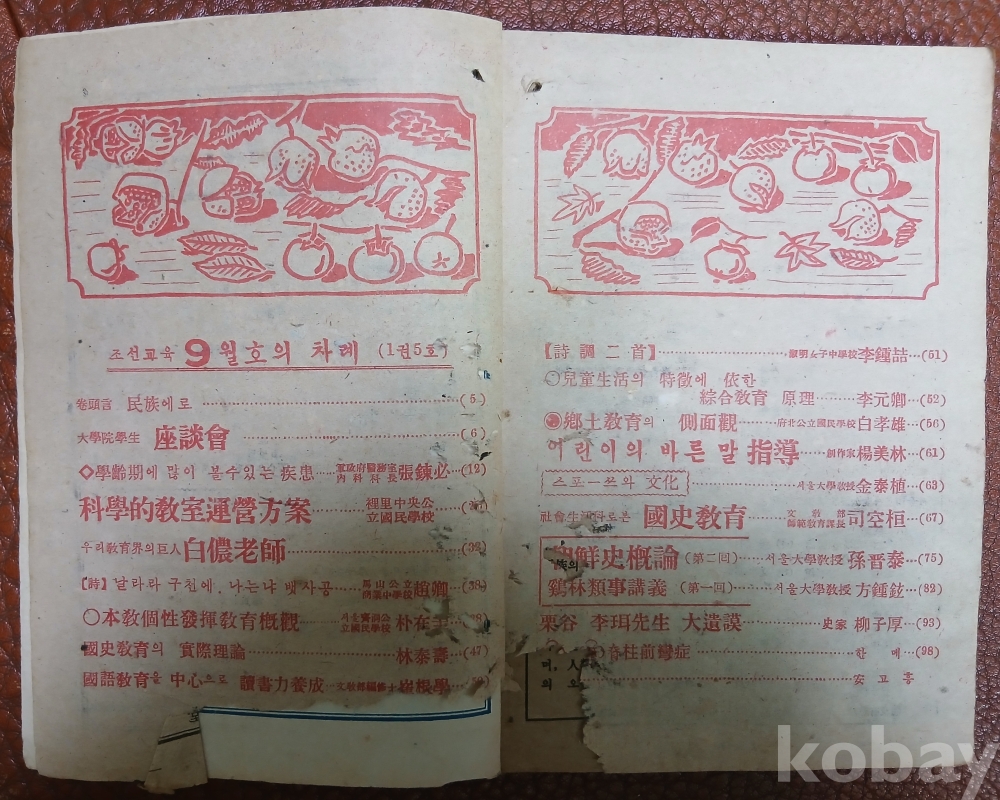 조선교육 9월호의 차례 (1권5호)
卷頭言 民族에로 (5)
大學院學生 座談會 (6)
◇學齡期에 많이 볼수있는 疾患 軍政府醫務室 內科科長 張鍊必 (12)
科學的敎室運營方案 裡里中央公立國民學校
우리敎育界의巨人 白儂老師 (32)
【詩】 날라라 구천에, 나는냐 뱃사공 馬山公立商業中學校 趙鄕 (38)
○本敎個性發揮敎育槪觀 公立國民學校 朴在
國史敎育의 實際理論 林泰壽 (47)
國語敎育을 中心으로 讀書力養成 文敎部編修士 崔根學
【詩調二首】 女子中學校 李鍾喆 (51)
○兒童生活의 特徵에 依한
綜合敎育 原理 李元卿 (52)
鄕土敎育의 側面觀 府北公立國民學校 白孝雄 (56)
어린이의 바른 말 指導 創作家 楊美林 (61)
스포ー쓰와 文化 서울大學敎授 金泰植 (63)
社會生活 國史敎育 文敎部 師範敎育課長 司空桓 (67)
朝鮮史槪論 (第二回) 서울大學敎授 孫晋泰 (75)
鷄林類事講義 (第一回) 서울大學敎授 方鍾鉉 (82)
栗谷 李珥先生 大遺謨 史家 柳子厚 (93)
脊柱前彎症 한 메 (98)
安고홍
kobay